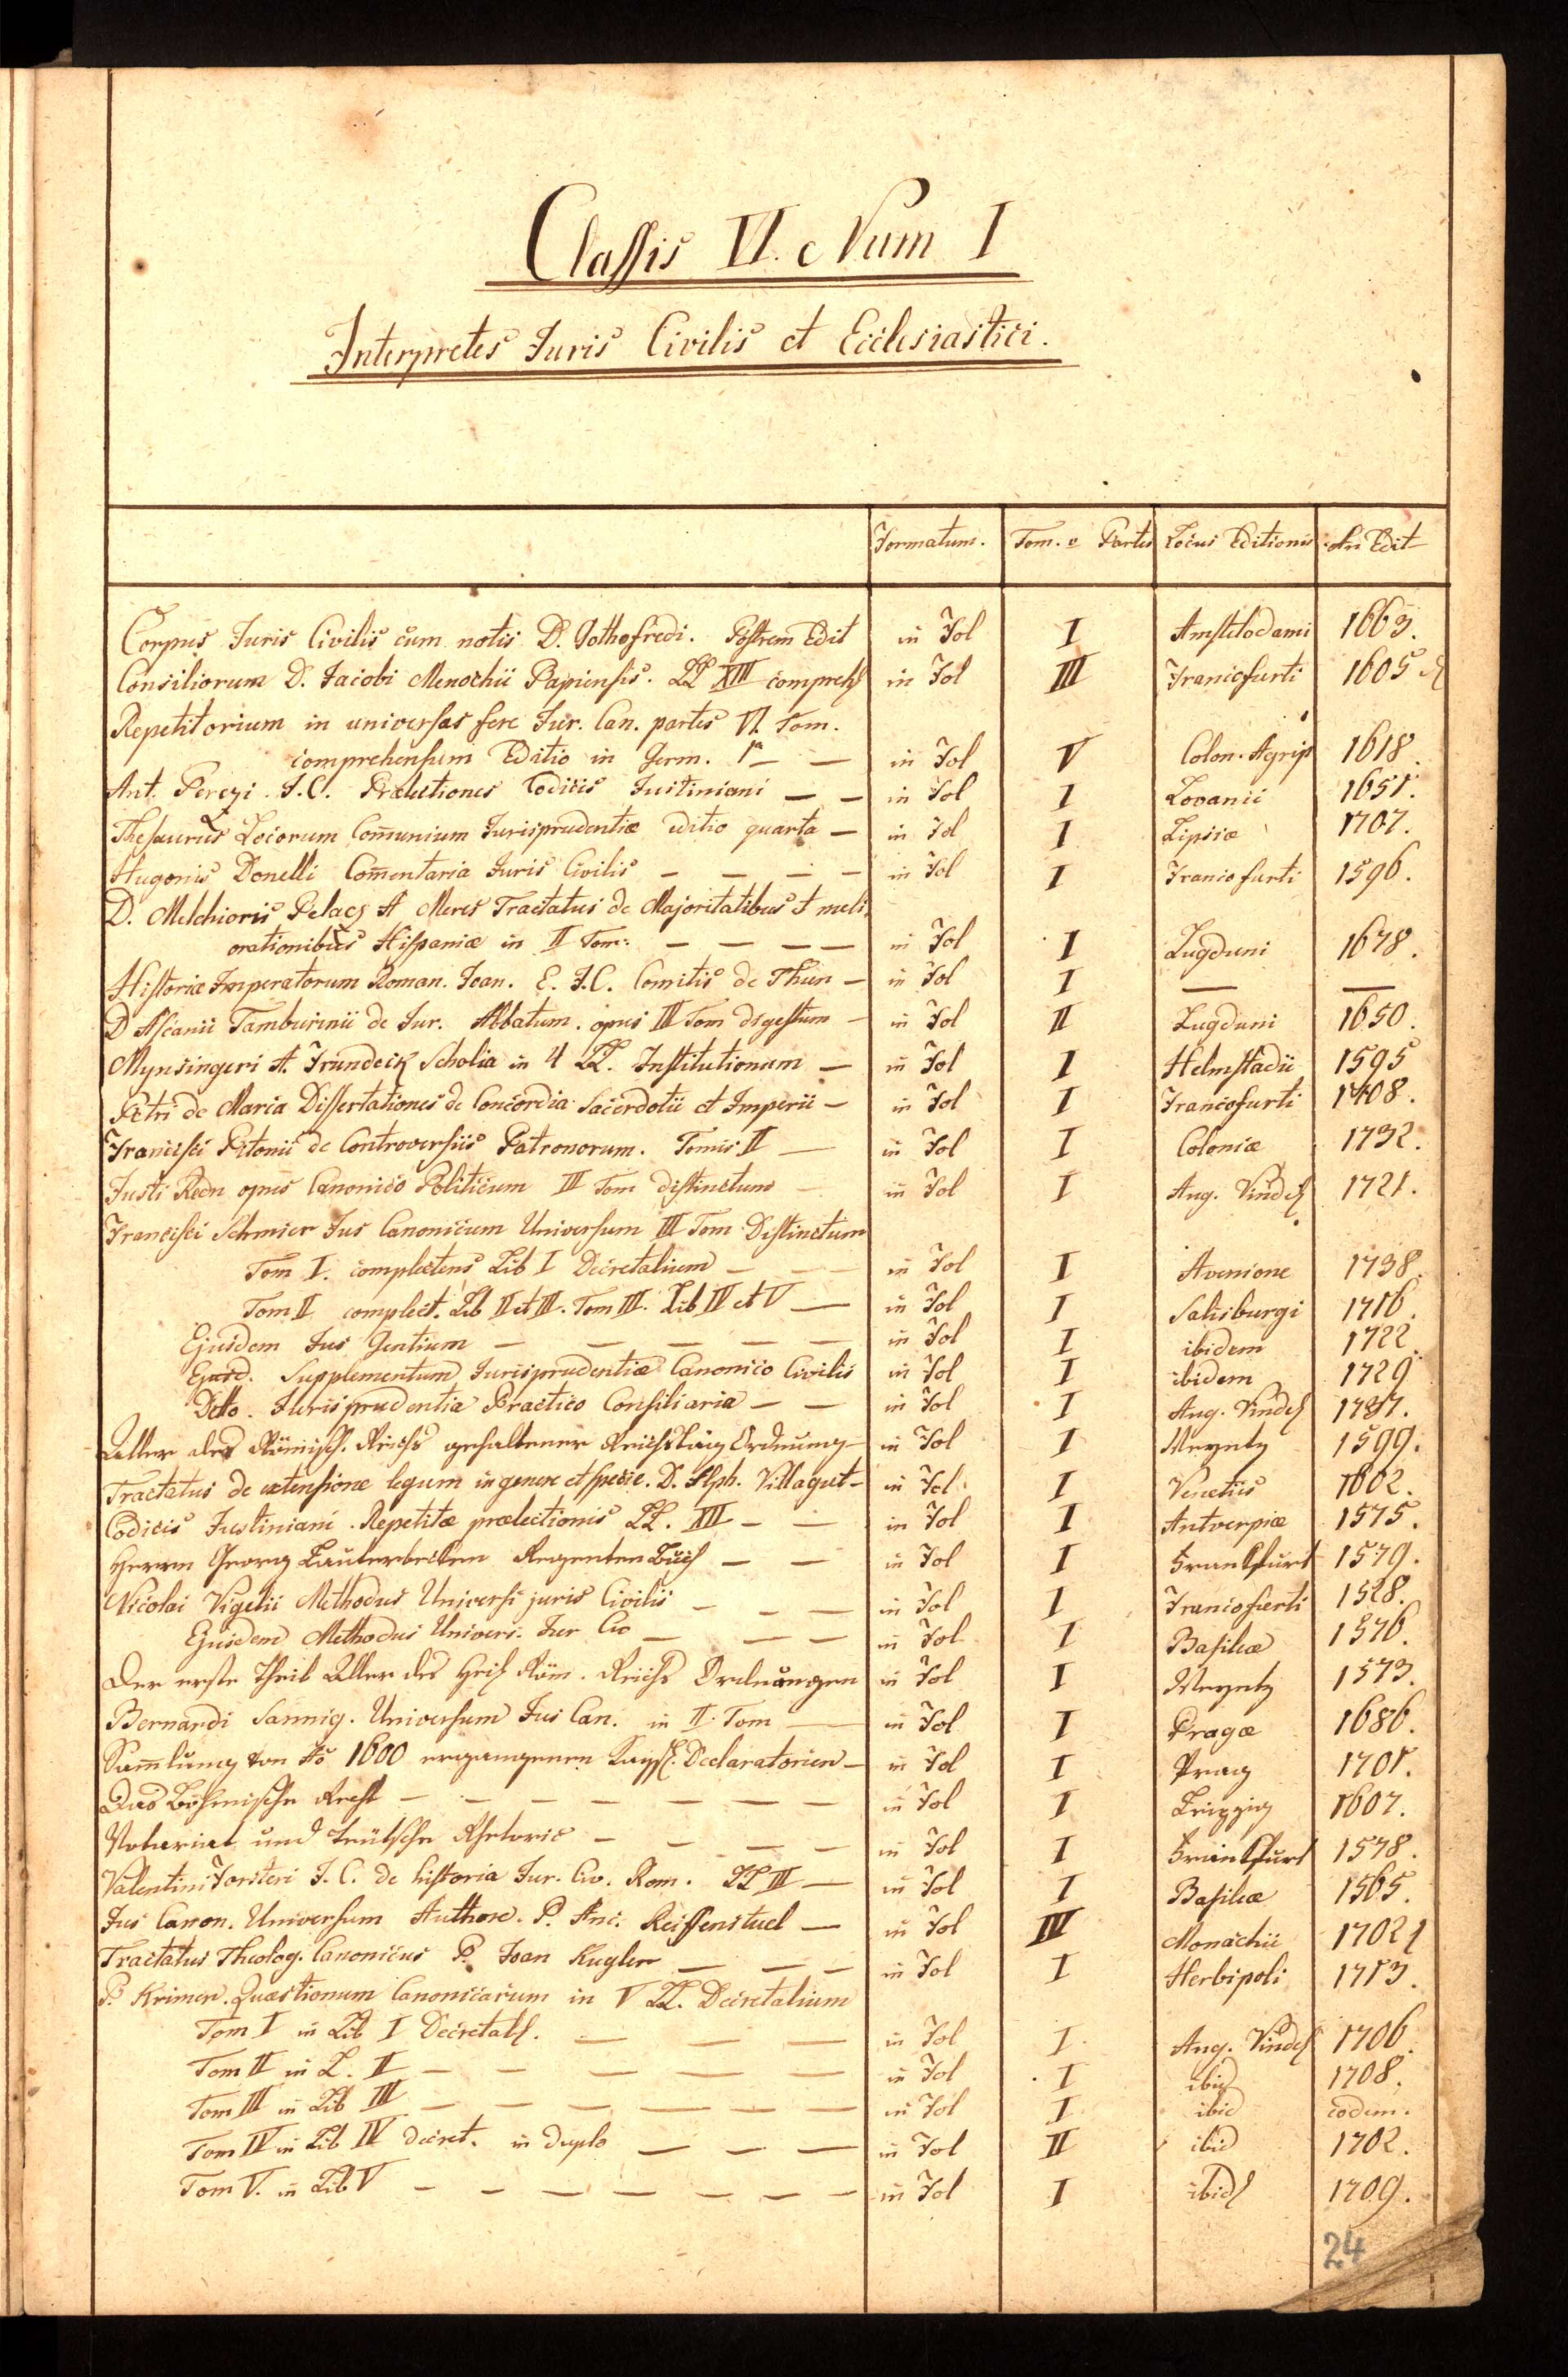 Classis VI. Num I
Interpretes Juris Civilis et Ecclesiastici.
Formatum. Tom. v Partes Locus Editionis An Edit
Corpus Juris Civilis cum notis D. Gothofredi. Postrem Edit in Fol I Amstelodami 1663.
Consiliorum D. Jacobi Menochii Papiensis. LL XIII compreh in Fol III Francofurti 1605
Repetitorium in universas fere Jur. Can. partes VI. Tom.
comprehensum Editio in Germ. 1ª — — in Fol V Colon. Agrip 1618.
Ant. Perezi. J.C. Prælectiones Codicis Justiniani — — in Fol I Lovanii 1651.
Thesaurus Locorum Com̄unium Jurisprudentiæ editio quarta — in Fol I Lipsiæ 1707.
Hugonis Donelli Com̄entaria Juris Civilis — — — — in Fol I Francofurti 1596.
D. Melchioris Pelaez A Meres Tractatus de Majoritatibus et meli,
orationibus Hispaniæ in II Tom: — — — — in Fol I Lugduni 1678.
Historiæ Imperatorum Roman. Joan. E. J.C. Comitis de Thun — in Fol I — —
D Ascanii Tamburinii de Jur. Abbatum. opus III Tom digestum — in Fol II Lugduni 1650.
Mynsingeri A. Frundeck Scholia in 4 LL. Institutionum — in Fol I Helmstadii 1595
Petri de Marca Dissertationes de Concordia Sacerdotii et Imperii — in Fol I Francofurti 1708.
Francisci Pitonii de Controversiis Patronorum. Tomis II — in Fol I Coloniæ 1732.
Justi Redn opus Canonico Politicum III Tom distinctum — in Fol I Aug. Vindel 1721.
Francisci Schmier Jus Canonicum Universum III Tom Distinctum
Tom I. complectens Lib I Decretalium — — — in Fol I Avenione 1738.
Tom II complect. Lib II et III. Tom III. Lib IV et V — in Fol I Salisburgi 1716.
Ejusdem Jus Gentium — — — — — in Fol I ibidem 1722.
Ejusd. Supplementum Jurisprudentiæ Canonico Civilis in Fol I ibidem 1729
Detto. Jurisprudentia Practico Consiliaria — — in Fol I Aug. Vindel 1737.
Aller des Römisch. Reichs gehaltener Reichstäg Ordnung — in Fol I Meyntz 1599.
Tractatus de extensione legum in genere et specie. D. Alph. Villagut — in Fol I Venetiis 1602.
Codicis Justiniani. Repetitæ prælectionis LL. XII — — in Fol I Antverpiæ 1575.
Herrn Georg Lauterbecken Regenten Buch — — in Fol I Frankfurt 1579.
Nicolai Vigelii Methodus Universi juris Civilis — — — in Fol I Francofurti 1528.
Ejusdem Methodus Univers. Jur Civ — — — in Fol I Basileæ 1576.
Der erste Theil Aller des Heil Röm. Reichs Ordnungen in Fol I Meyntz 1573.
Bernardi Sannig. Universum Jus Can. in II. Tom — in Fol I Pragæ 1686.
Sam̄lung von Aõ 1600 ergangenen Kaysl. Declaratorien — in Fol I Prag 1701.
Das Böhmische Recht — — — — — — — in Fol I Leipzig 1607.
Notariat und Teütsche Rhetoric — — — — in Fol I Frankfurt 1578.
Valentini Forsteri J. C. de historia Jur. Civ. Rom. LL III — in Fol I Basileæ 1565.
Jus Canon. Universum Authore. P. Anc. Reiffenstuel — in Fol IV Monachii 1702
Tractatus Theolog. Canonicus P. Joan Kugler — — — in Fol I Herbipoli 1713.
P. Krimer. Quæstionum Canonicarum in V LL. Decretalium
Tom I in Lib I Decretal. — — — in Fol I Aug. Vindel 1706.
Tom II in L. II — — — — — in Fol I ibid 1708.
Tom III in Lib III — — — — — — in Fol I ibid eodem.
Tom IV in Lib IV decret. in duplo — — — in Fol II ibid 1702.
Tom V. in Lib V — — — — — — — in Fol I ibid 1709.
24